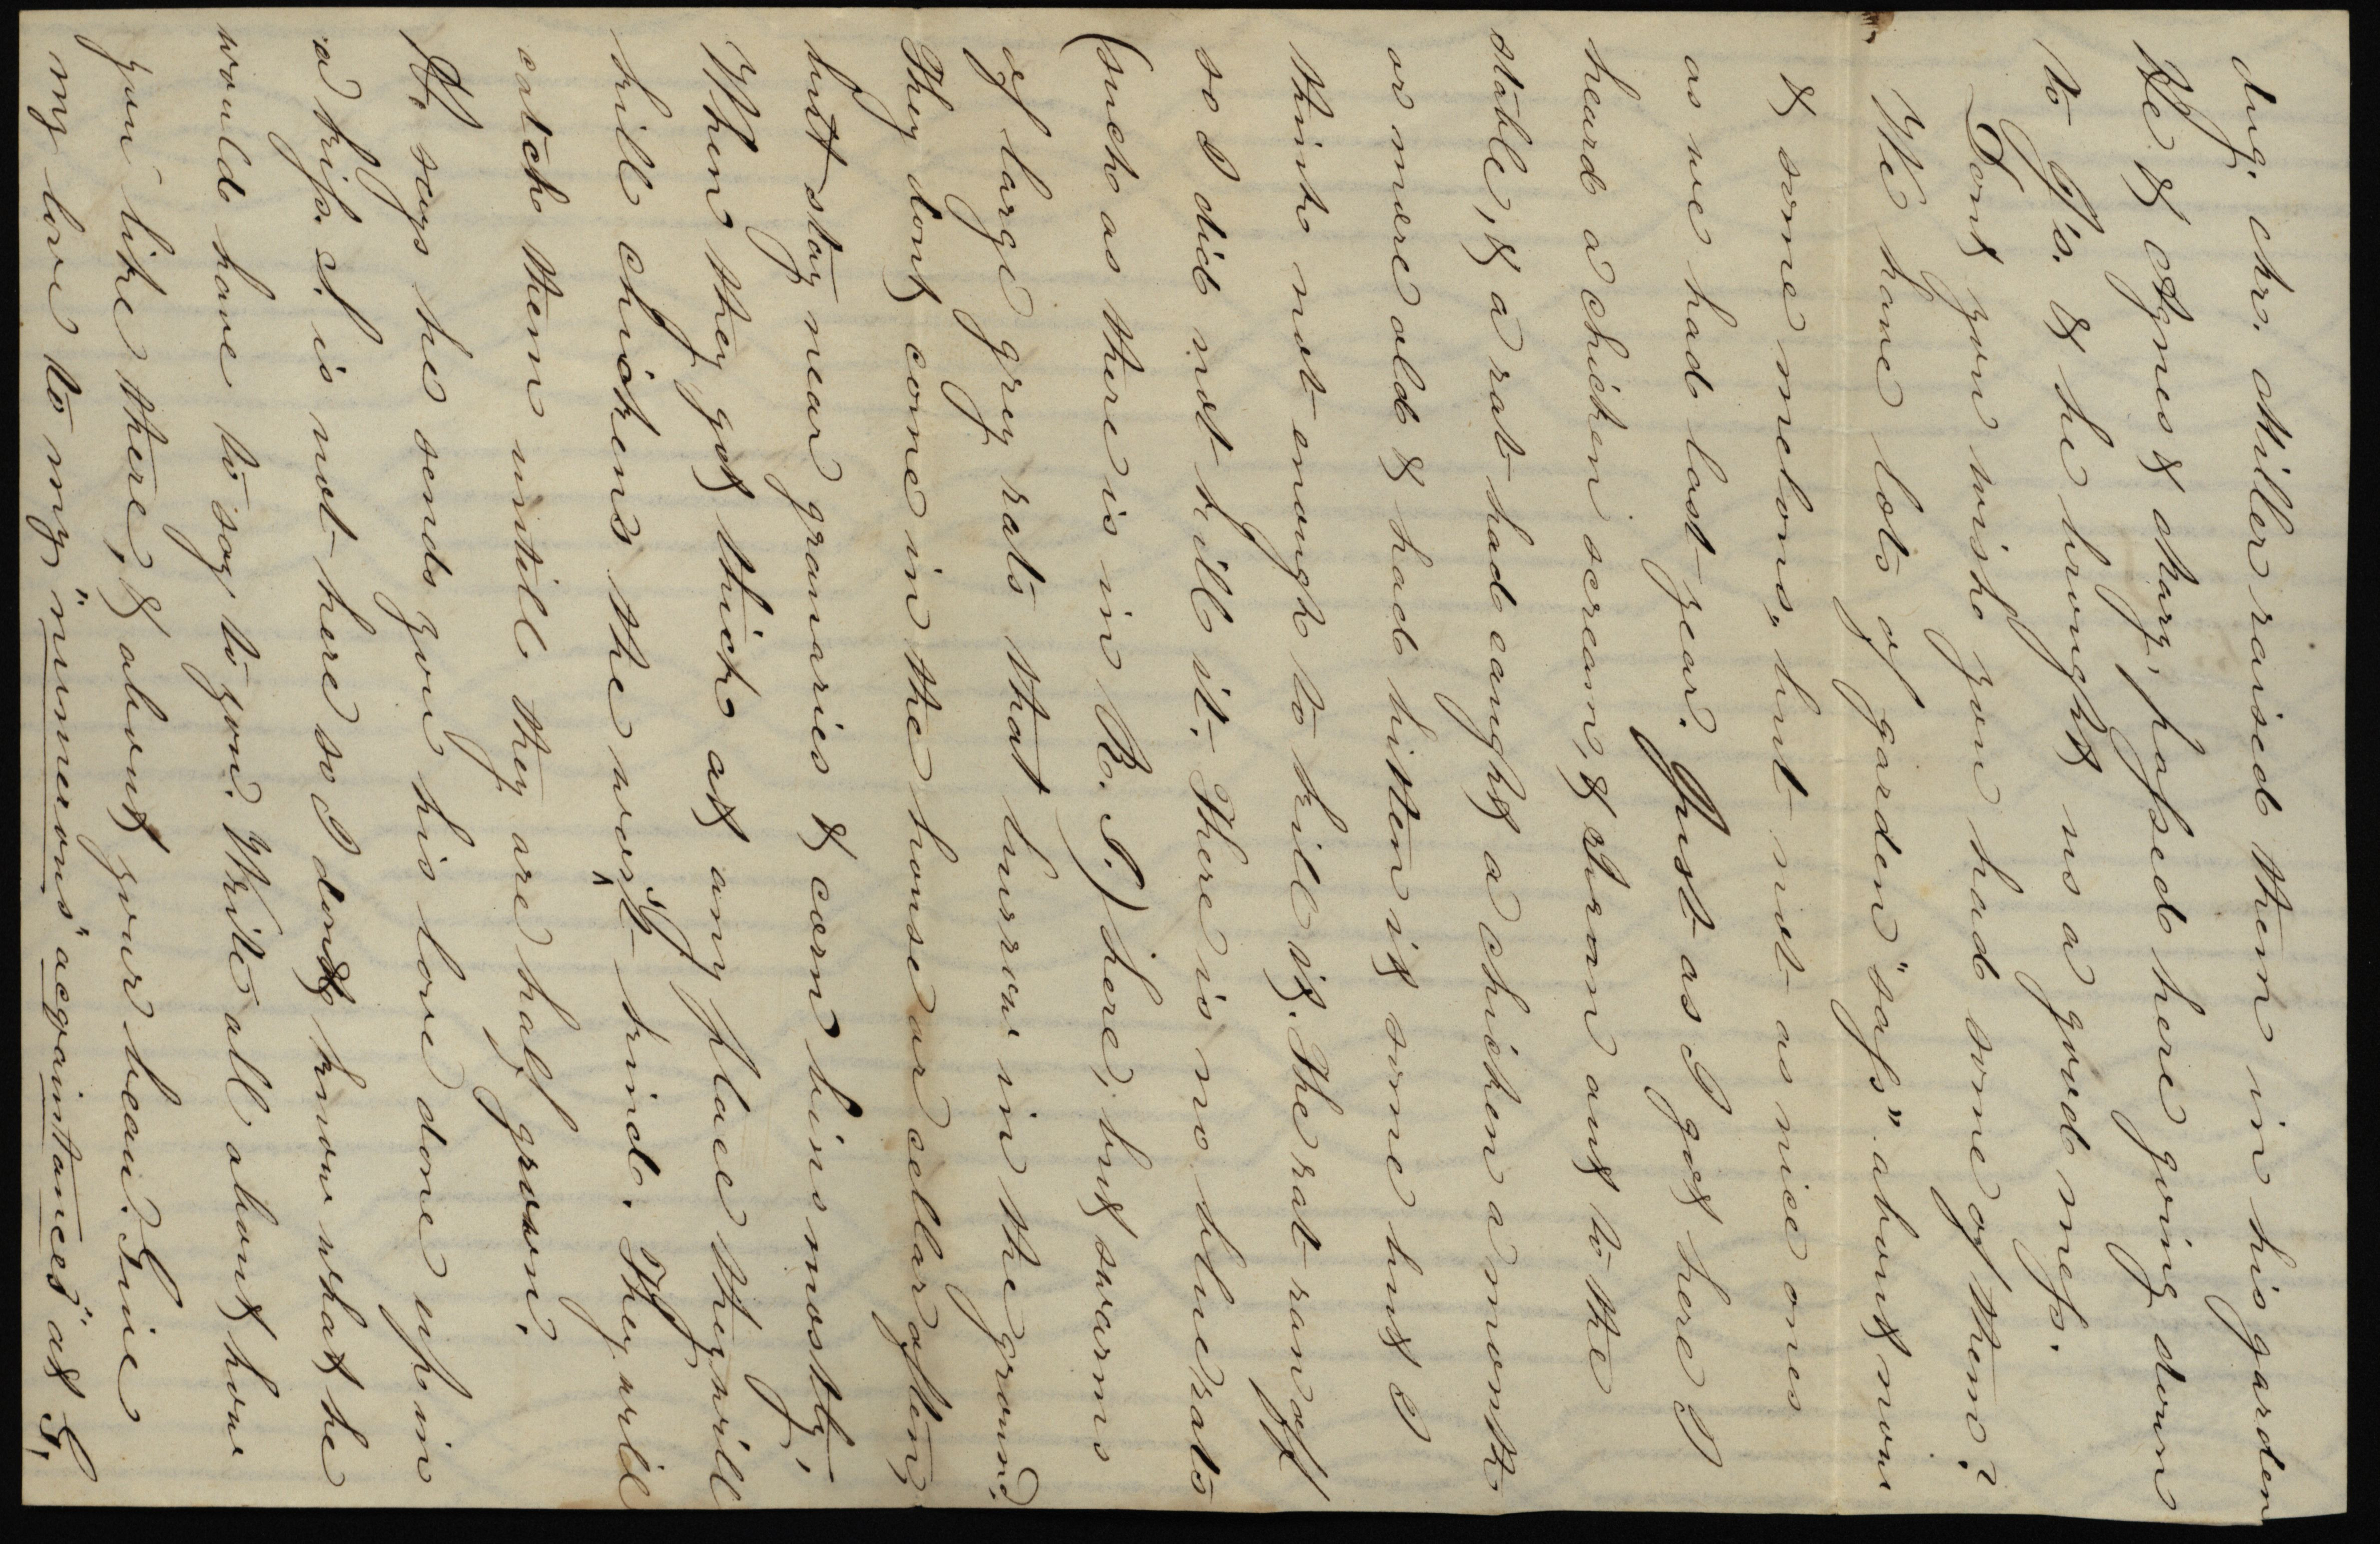 dug. Mr. Miller raised them in his garden
He & Agnes & Mary, passed here going down
to G's. & he brought us a good mess.
Dont you wish you had some of them?
We have lots of garden "sass" about now
& some melons, but not as nice ones
as we had last year. Just as I got here I
heard a chicken scream, & I ran out to the
stable, & a rat had caught a chicken a month
or more old & had bitten it some but I
think not enough to kill it. The rat ran off
so I did not kill it. There is no blue rats
(such as there is in R. I.) here, but swarms
of large grey rats that burrow in the ground.
They dont come in the house or cellar often,
but stay near granaries & corn bins mostly,
When they get thick at any place they will
kill chickens the worst kind. They will
catch them untill they are half grown.
H. says he sends you his love done up in
a kiss. A. is not here so I dont know what he
would have to say to you. Write all about how
you like there, & about your beau. Give
my love to my "numerous" acquaintances" at G,